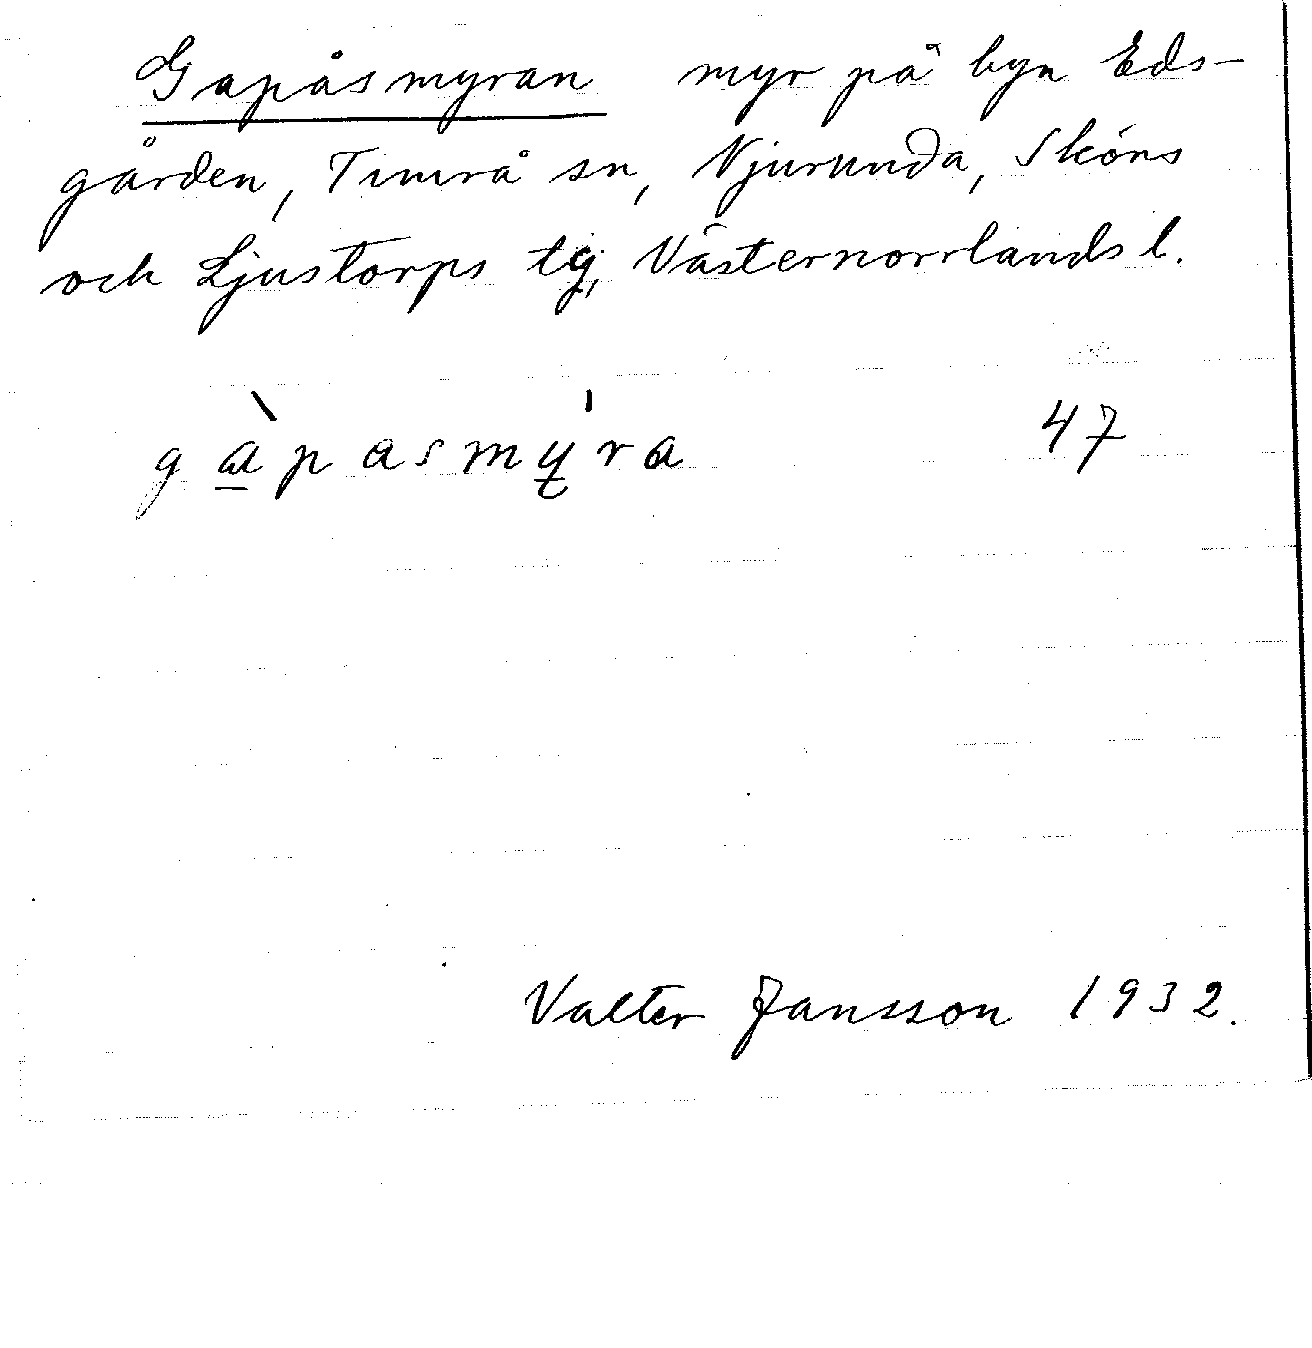 Gapåsmyran myr på byn Eds-
gården, Timrå sn, Njurunda, Sköns
och Ljustorps tg, Västernorrlands l.
gàpasmy̨ra 47
Valter Jansson 1932.